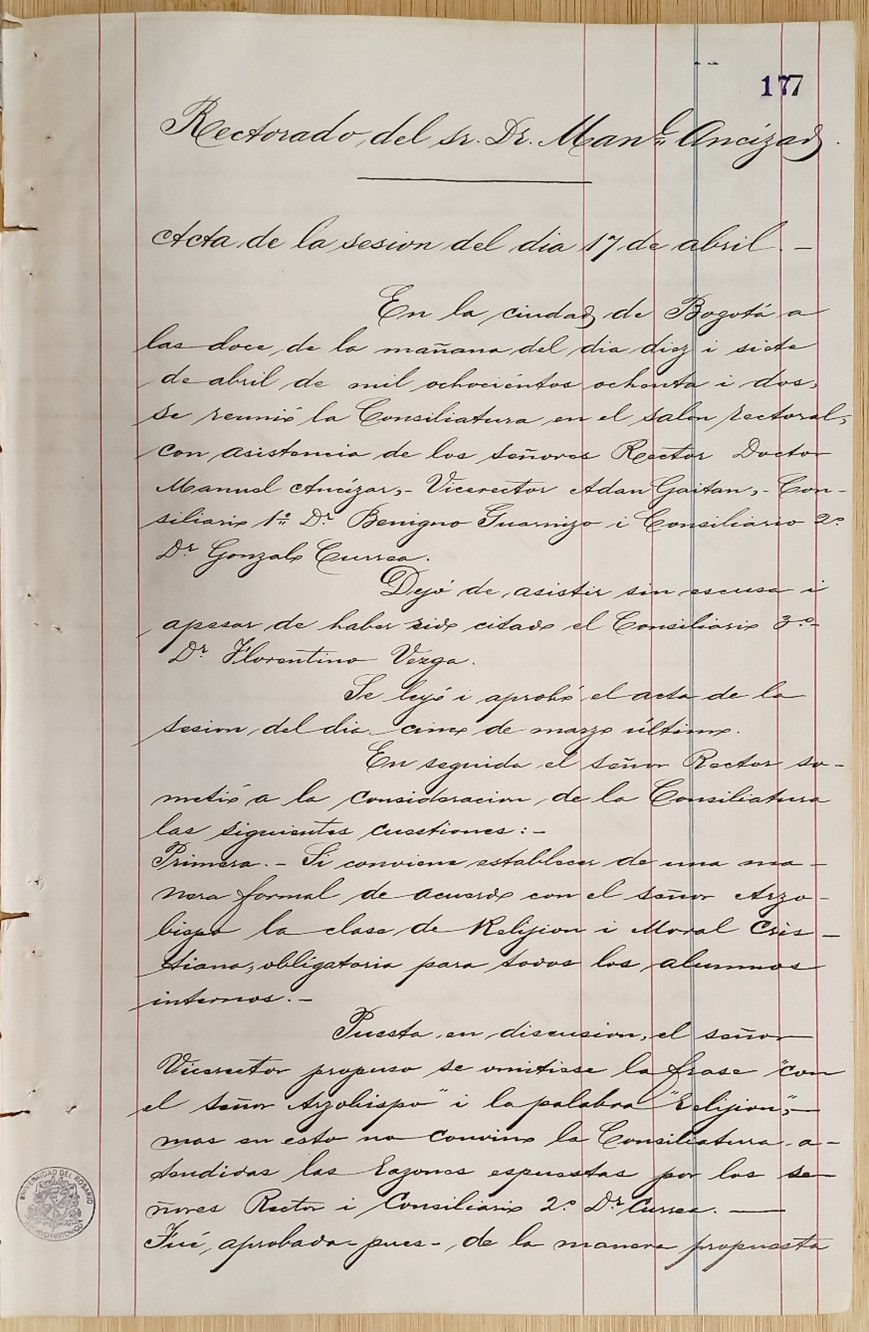 177
Rectorado del Sr. Dr. Manl. Ancízar.
Acta de la sesion del dia 17 de abril. -
En la ciudad de Bogotá a
las doce de la mañana del dia diez i siete
de abril de mil ochocientos ochenta i dos,
se reunió la Consiliatura en el salon rectoral,
con asistencia de los señores Rector Doctor
Manuel Ancízar, - Vicerector Adan Gaitan, - Con-
siliario 1º Dr Benigno Guarnizo i Consiliario 2º
Dr Gonzalo Currea.
Dejó de asistir sin escusa i
apesar de haber sido citado el Consiliario 3º -
Dr Florentino Vezga.
Se leyó i aprobó el acta de la
sesion del dia cinco de marzo último.
En seguida el señor Rector so-
metió a la consideracion de la Consiliatura
las siguientes cuestiones: -
Primera. - Si conviene establecer de una ma-
nera formal de acuerdo con el señor Arzo-
bispo la clase de Relijion i Moral Cris-
tiana, obligatoria para todos los alumnos
internos. -
Puesta en discusion, el señor
Vicerector propuso se omitiese la frase "con
el señor Arzobispo" i la palabra "Relijion", -
mas en esto no convino la Consiliatura a-
tendidas las razones espuestas por los se-
ñores Rector i Consiliario 2º Dr Currea. —
Fué, aprobada - pues -, de la manera propuesta
UNIVERSIDAD DEL ROSARIO
ARCHIVO HISTÓRICO